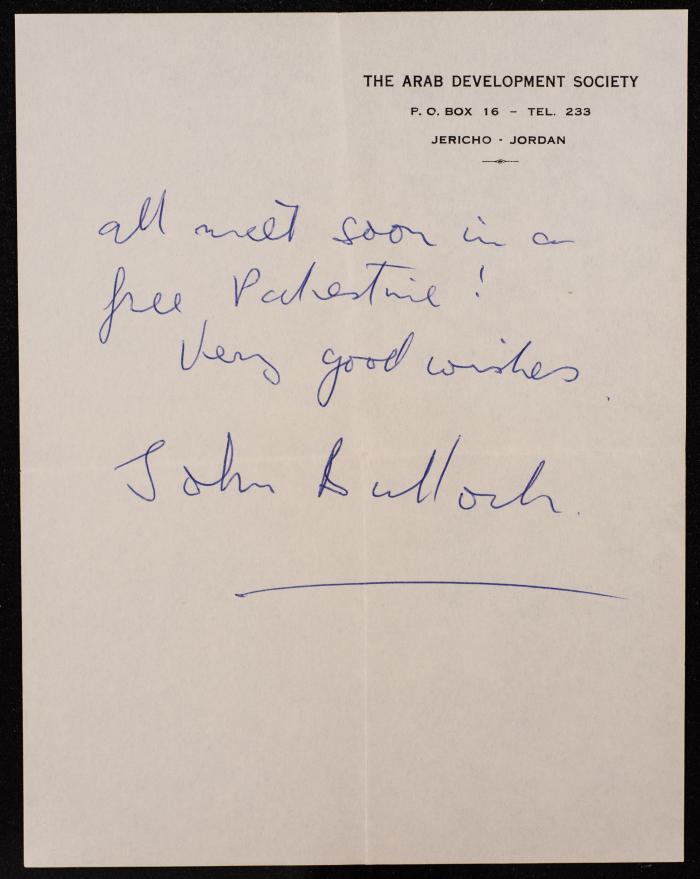 THE ARAB DEVELOPMENT SOCIETY
P. O. BOX 16 - TEL. 233
JERICHO - JORDAN
all meet soon in a
free Palestine!
Very good wishes.
John Bulloch.